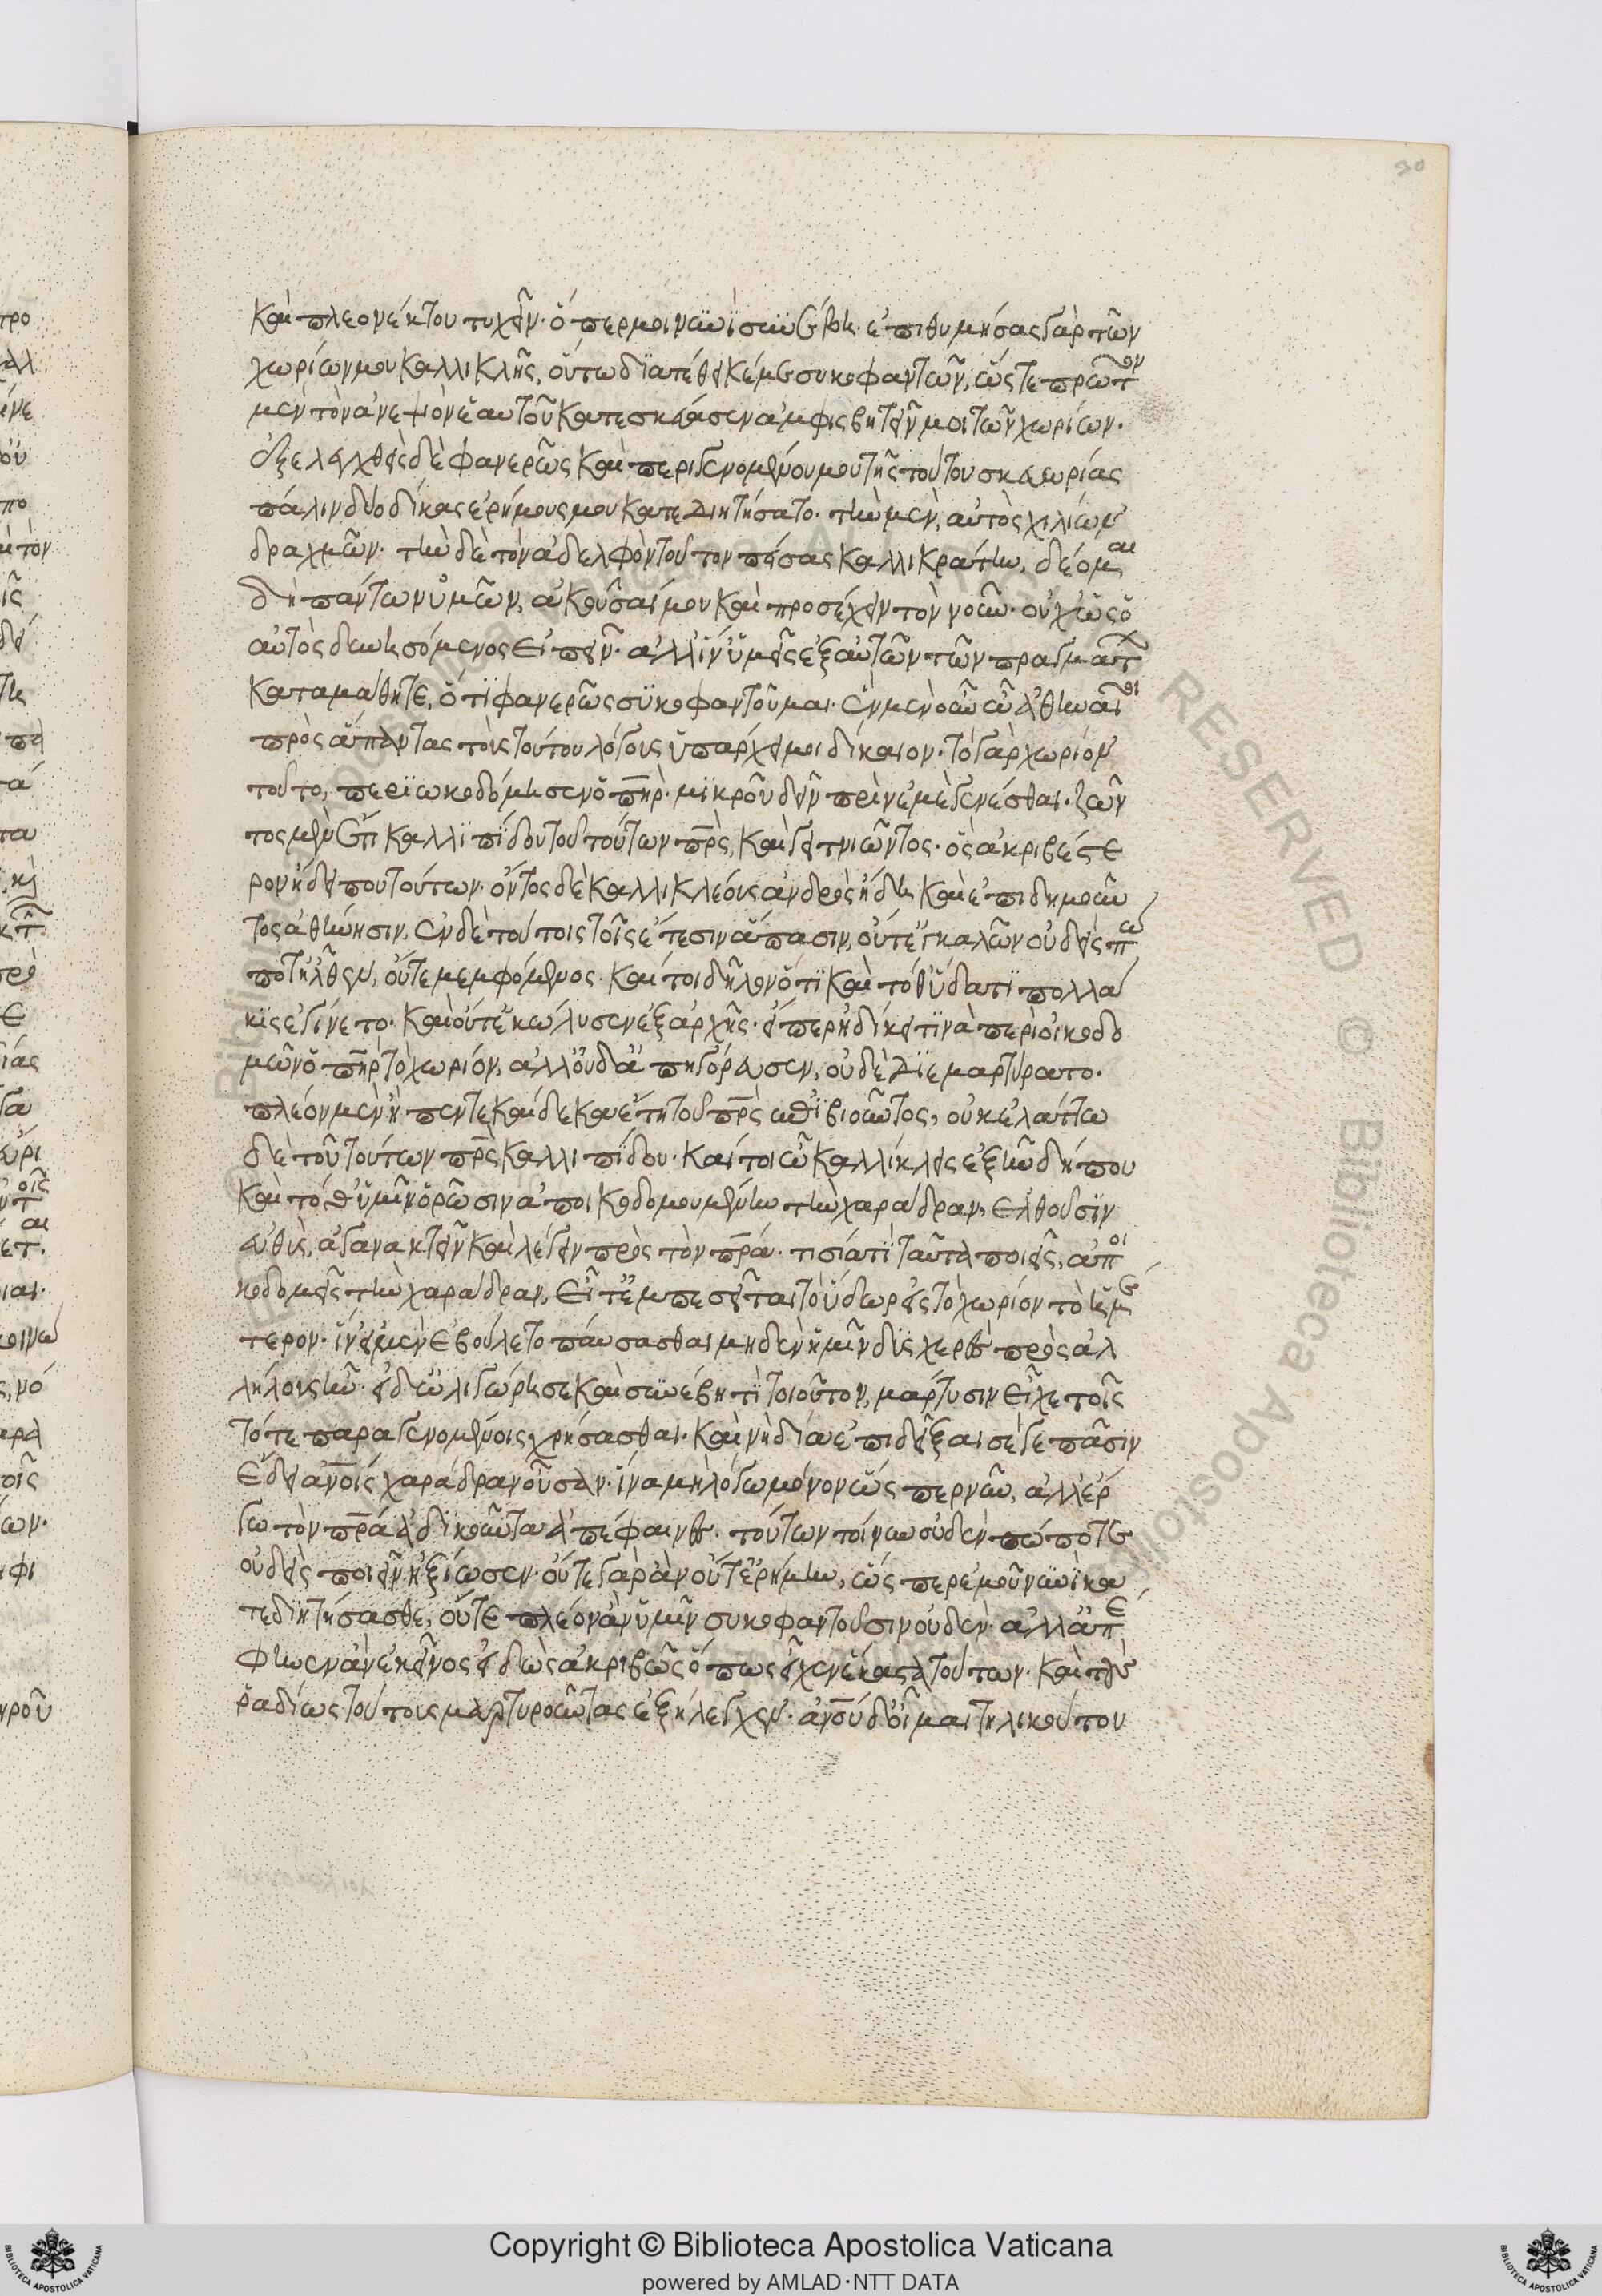 καὶ πλεονέκτου τυχεῖν· ὅπερ μοι νυνὶ συμβέβηκ· ἐπιθυμήσας γὰρ τῶν
χωρίων μου Καλλικλῆς, οὕτω διατέθεικέ με συκοφαντῶν, ὥστε πρῶτον
μὲν τὸν ἀνεψιὸν ἑαυτοῦ κατεσκεύασεν ἀμφισβητεῖν μοι τῶν χωρίων·
ἐξελεγχθεὶς δὲ φανερῶς καὶ περιγενομένου μου τῆς τούτου σκευωρίας
πάλιν δύο δίκας ἐρήμους μου κατεδιητήσατο· τὴν μὲν, αὐτὸς χιλίων
δραχμῶν· τὴν δὲ τὸν ἀδελφὸν τοῦτον πείσας Καλλικράτην, δέομαι
δὴ πάντων ὑμῶν, ἀκοῦσαί μου καὶ προσέχειν τὸν νοῦν· οὐχ ὡς ὁ
αὐτὸς δεησόμενος εἰπεῖν· ἀλλ' ἵν' ὑμεῖς ἐξ αὐτῶν τῶν πραγμάτων
καταμάθητε, ὅτι φανερῶς συκοφαντοῦμαι· ἓν μὲν οὖν ὦ ἄνδρες Ἀθηναῖοι
πρὸς ἅπαντας τοῖς τούτου λόγους ὑπάρχει μοι δίκαιον· τὸ γὰρ χωρίον
τοῦτο, περιῳκοδόμησεν ὁ πηρ· μικροῦ δεῖν πρὶν ἐμὲ γενέσθαι· ζῶν
τος μὲν ἔτι Καλλιπίδου τοῦ τούτων πρς, καὶ γειτνιῶντος· ὃς ἀκριβέστε
ρον ᾔδει που τούτων· ὄντος δὲ Καλλικλέους ἀνδρὸς ἤδη καὶ ἐπιδημοῦν
τος ἀθήνησιν, ἐν δὲ τούτοις τοῖς ἔτεσιν ἅπασιν, οὔτ' ἐγκαλῶν οὐδεὶς πώ
ποτ' ἦλθεν, οὔτε μεμφόμενος· καίτοι δῆλον ὅτι καὶ τόθ' ὕδατι πολλά
κις ἐγίνετο· καὶ οὔτ' ἐκώλυσεν ἐξ ἀρχῆς· εἴπερ ἠδίκει τινὰ περιοικοδο
μῶν ὁ πηρ τὸ χωρίον, ἀλλ' οὐδ' ἀπηγόρευσεν, οὐδὲ διεμαρτύρατο·
πλέον μὲν ἢ πεντεκαίδεκα ἔτη τοῦ πρς ἐπιβιοῦντος, οὐκ ἐλάττω
δὲ τοῦ τούτων πρς Καλλιπίδου· καίτοι ὦ Καλλίκλεις ἐξῆν δήπου
καὶ τόθ' ὑμῖν ὁρῶσιν ἀποικοδομουμένην τὴν χαράδραν, ἐλθοῦσιν
εὐθὺς, ἀγανακτεῖν καὶ λέγειν πρὸς τὸν πρα· τισία τί ταῦτα ποιεῖς, ἀποι
κοδομεῖς τὴν χαράδραν, εἶτ' ἐμπεσεῖται τὸ ὕδωρ εἰς τὸ χωρίον τὸ ἡμέ
τερον· ἵν' εἰ μὲν ἐβούλετο παύσασθαι μηδὲν ἡμῖν δυσχερὲς πρὸς ἀλ
λήλους ἦν· εἰ δ' ὠλιγώρησε καὶ συνέβη τι τοιοῦτον, μάρτυσιν εἶχε τοῖς
τότε παραγενομένοις χρήσασθαι· καὶ νὴ δία ἐπιδεῖξαι σέ γε πᾶσιν
ἔδει ἀνοις χαράδραν οὖσαν· ἵνα μὴ λόγῳ μόνον ὥσπερ νῦν, ἀλλ' ἔρ
γῳ τὸν πρα ἀδικοῦντα ἀπέφαινες· τούτων τοίνυν οὐδὲν πώποτε
οὐδεὶς ποιεῖν ἠξίωσεν· οὔτε γὰρ ἂν οὔτ' ἐρήμην, ὥσπερ ἐμοῦ νυνὶ κα
τεδιητήσασθε, οὔτε πλέον ἂν ὑμῖν συκοφαντοῦσιν οὐδὲν· ἀλλ' ἀπέ
φηνεν ἂν ἐκεῖνος εἰδὼς ἀκριβῶς ὅπως εἶχεν ἕκαστα τούτων· καὶ τοὺς
ῥᾳδίως τούτους μαρτυροῦντας ἐξήλεγχεν· ἀνου δ' οἶμαι τηλικούτου